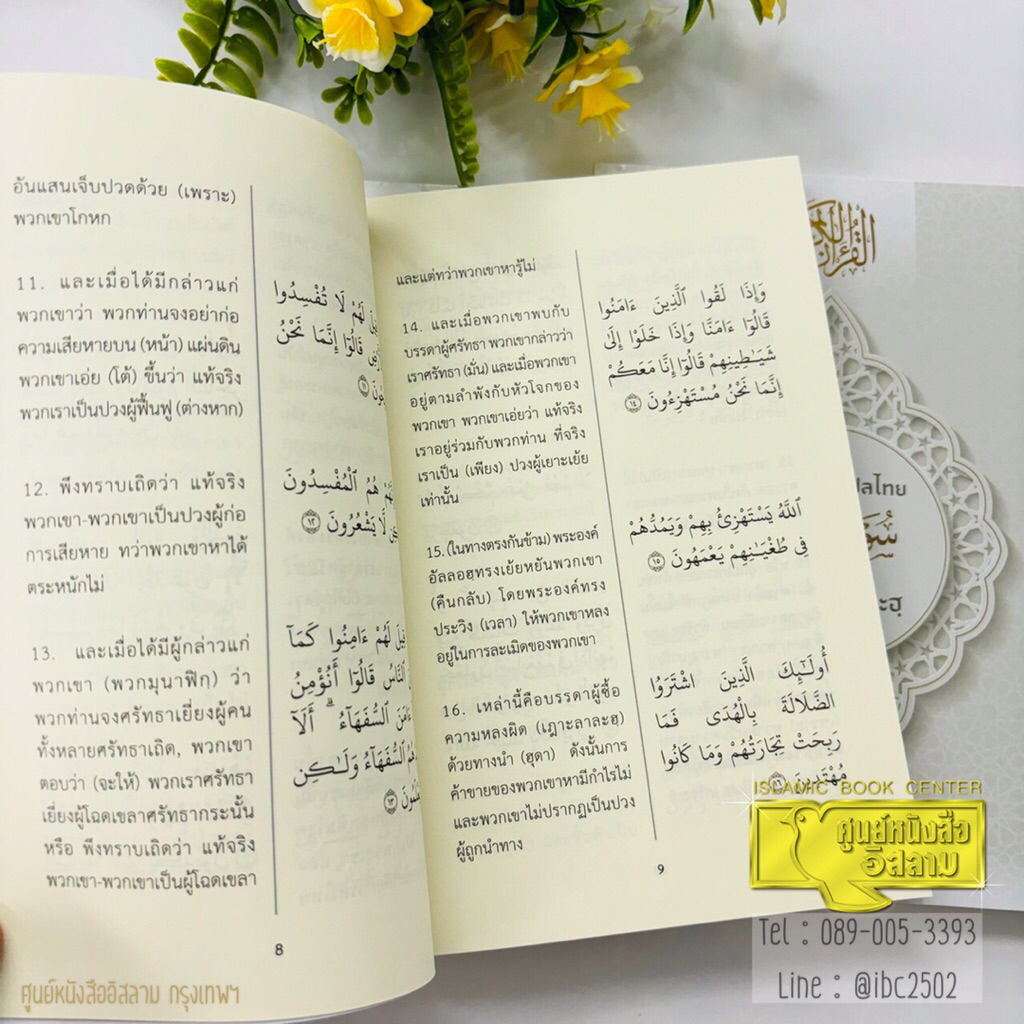 อันแสนเจ็บปวดด้วย (เพราะ)
พวกเขาโกหก
11. และเมื่อได้มีกล่าวแก่
พวกเขาว่า พวกท่านจงอย่าก่อ
ความเสียหายบน (หน้า) แผ่นดิน
พวกเขาเอ่ย (โต้) ขึ้นว่า แท้จริง
พวกเราเป็นปวงผู้ฟื้นฟู (ต่างหาก)
12. พึงทราบเถิดว่า แท้จริง
พวกเขา-พวกเขาเป็นปวงผู้ก่อ
การเสียหาย ทว่าพวกเขาหาได้
ตระหนักไม่
13. และเมื่อได้มีผู้กล่าวแก่
พวกเขา (พวกมุนาฟิกฺ) ว่า
พวกท่านจงศรัทธาเยี่ยงผู้คน
ทั้งหลายศรัทธาเถิด, พวกเขา
ตอบว่า (จะให้) พวกเราศรัทธา
เยี่ยงผู้โฉดเขลาศรัทธากระนั้น
หรือ พึงทราบเถิดว่า แท้จริง
พวกเขา-พวกเขาเป็นผู้โฉดเขลา
لَهُمْ لَا تُفْسِدُوا
قَالُوٓا۟ إِنَّمَا نَحْنُ
هُمُ ٱلْمُفْسِدُونَ
لَّا يَشْعُرُونَ ١٢
لَهُمْ ءَامِنُوا۟ كَمَآ
ٱلنَّاسُ قَالُوٓا۟ أَنُؤْمِنُ
ٱلسُّفَهَآءُ ۗ أَلَآ
ٱلسُّفَهَآءُ وَلَـٰكِن
١٣
8
และแต่ทว่าพวกเขาหารู้ไม่
14. และเมื่อพวกเขาพบกับ
บรรดาผู้ศรัทธา พวกเขากล่าวว่า
เราศรัทธา (มั่น) และเมื่อพวกเขา
อยู่ตามลำพังกับหัวโจกของ
พวกเขา พวกเขาเอ่ยว่า แท้จริง
เราอยู่ร่วมกับพวกท่าน ที่จริง
เราเป็น (เพียง) ปวงผู้เยาะเย้ย
เท่านั้น
15. (ในทางตรงกันข้าม) พระองค์
อัลลอฮฺทรงเย้ยหยันพวกเขา
(คืนกลับ) โดยพระองค์ทรง
ประวิง (เวลา) ให้พวกเขาหลง
อยู่ในการละเมิดของพวกเขา
16. เหล่านี้คือบรรดาผู้ซื้อ
ความหลงผิด (เฎาะลาละฮฺ)
ด้วยทางนำ (ฮุดา) ดังนั้นการ
ค้าขายของพวกเขาหามีกำไรไม่
และพวกเขาไม่ปรากฏเป็นปวง
ผู้ถูกนำทาง
وَإِذَا لَقُوا۟ ٱلَّذِينَ ءَامَنُوا۟
قَالُوٓا۟ ءَامَنَّا وَإِذَا خَلَوْا۟ إِلَىٰ
شَيَـٰطِينِهِمْ قَالُوٓا۟ إِنَّا مَعَكُمْ
إِنَّمَا نَحْنُ مُسْتَهْزِءُونَ ١٤
ٱللَّهُ يَسْتَهْزِئُ بِهِمْ وَيَمُدُّهُمْ
فِى طُغْيَـٰنِهِمْ يَعْمَهُونَ ١٥
أُو۟لَـٰٓئِكَ ٱلَّذِينَ ٱشْتَرَوُا۟
ٱلضَّلَـٰلَةَ بِٱلْهُدَىٰ فَمَا
رَبِحَت تِّجَـٰرَتُهُمْ وَمَا كَانُوا۟
مُهْتَدِينَ ١٦
9
ISLAMIC BOOK CENTER
ศูนย์หนังสือ
อิสลาม
Tel : 089-005-3393
Line : @ibc2502
ศูนย์หนังสืออิสลาม กรุงเทพฯ